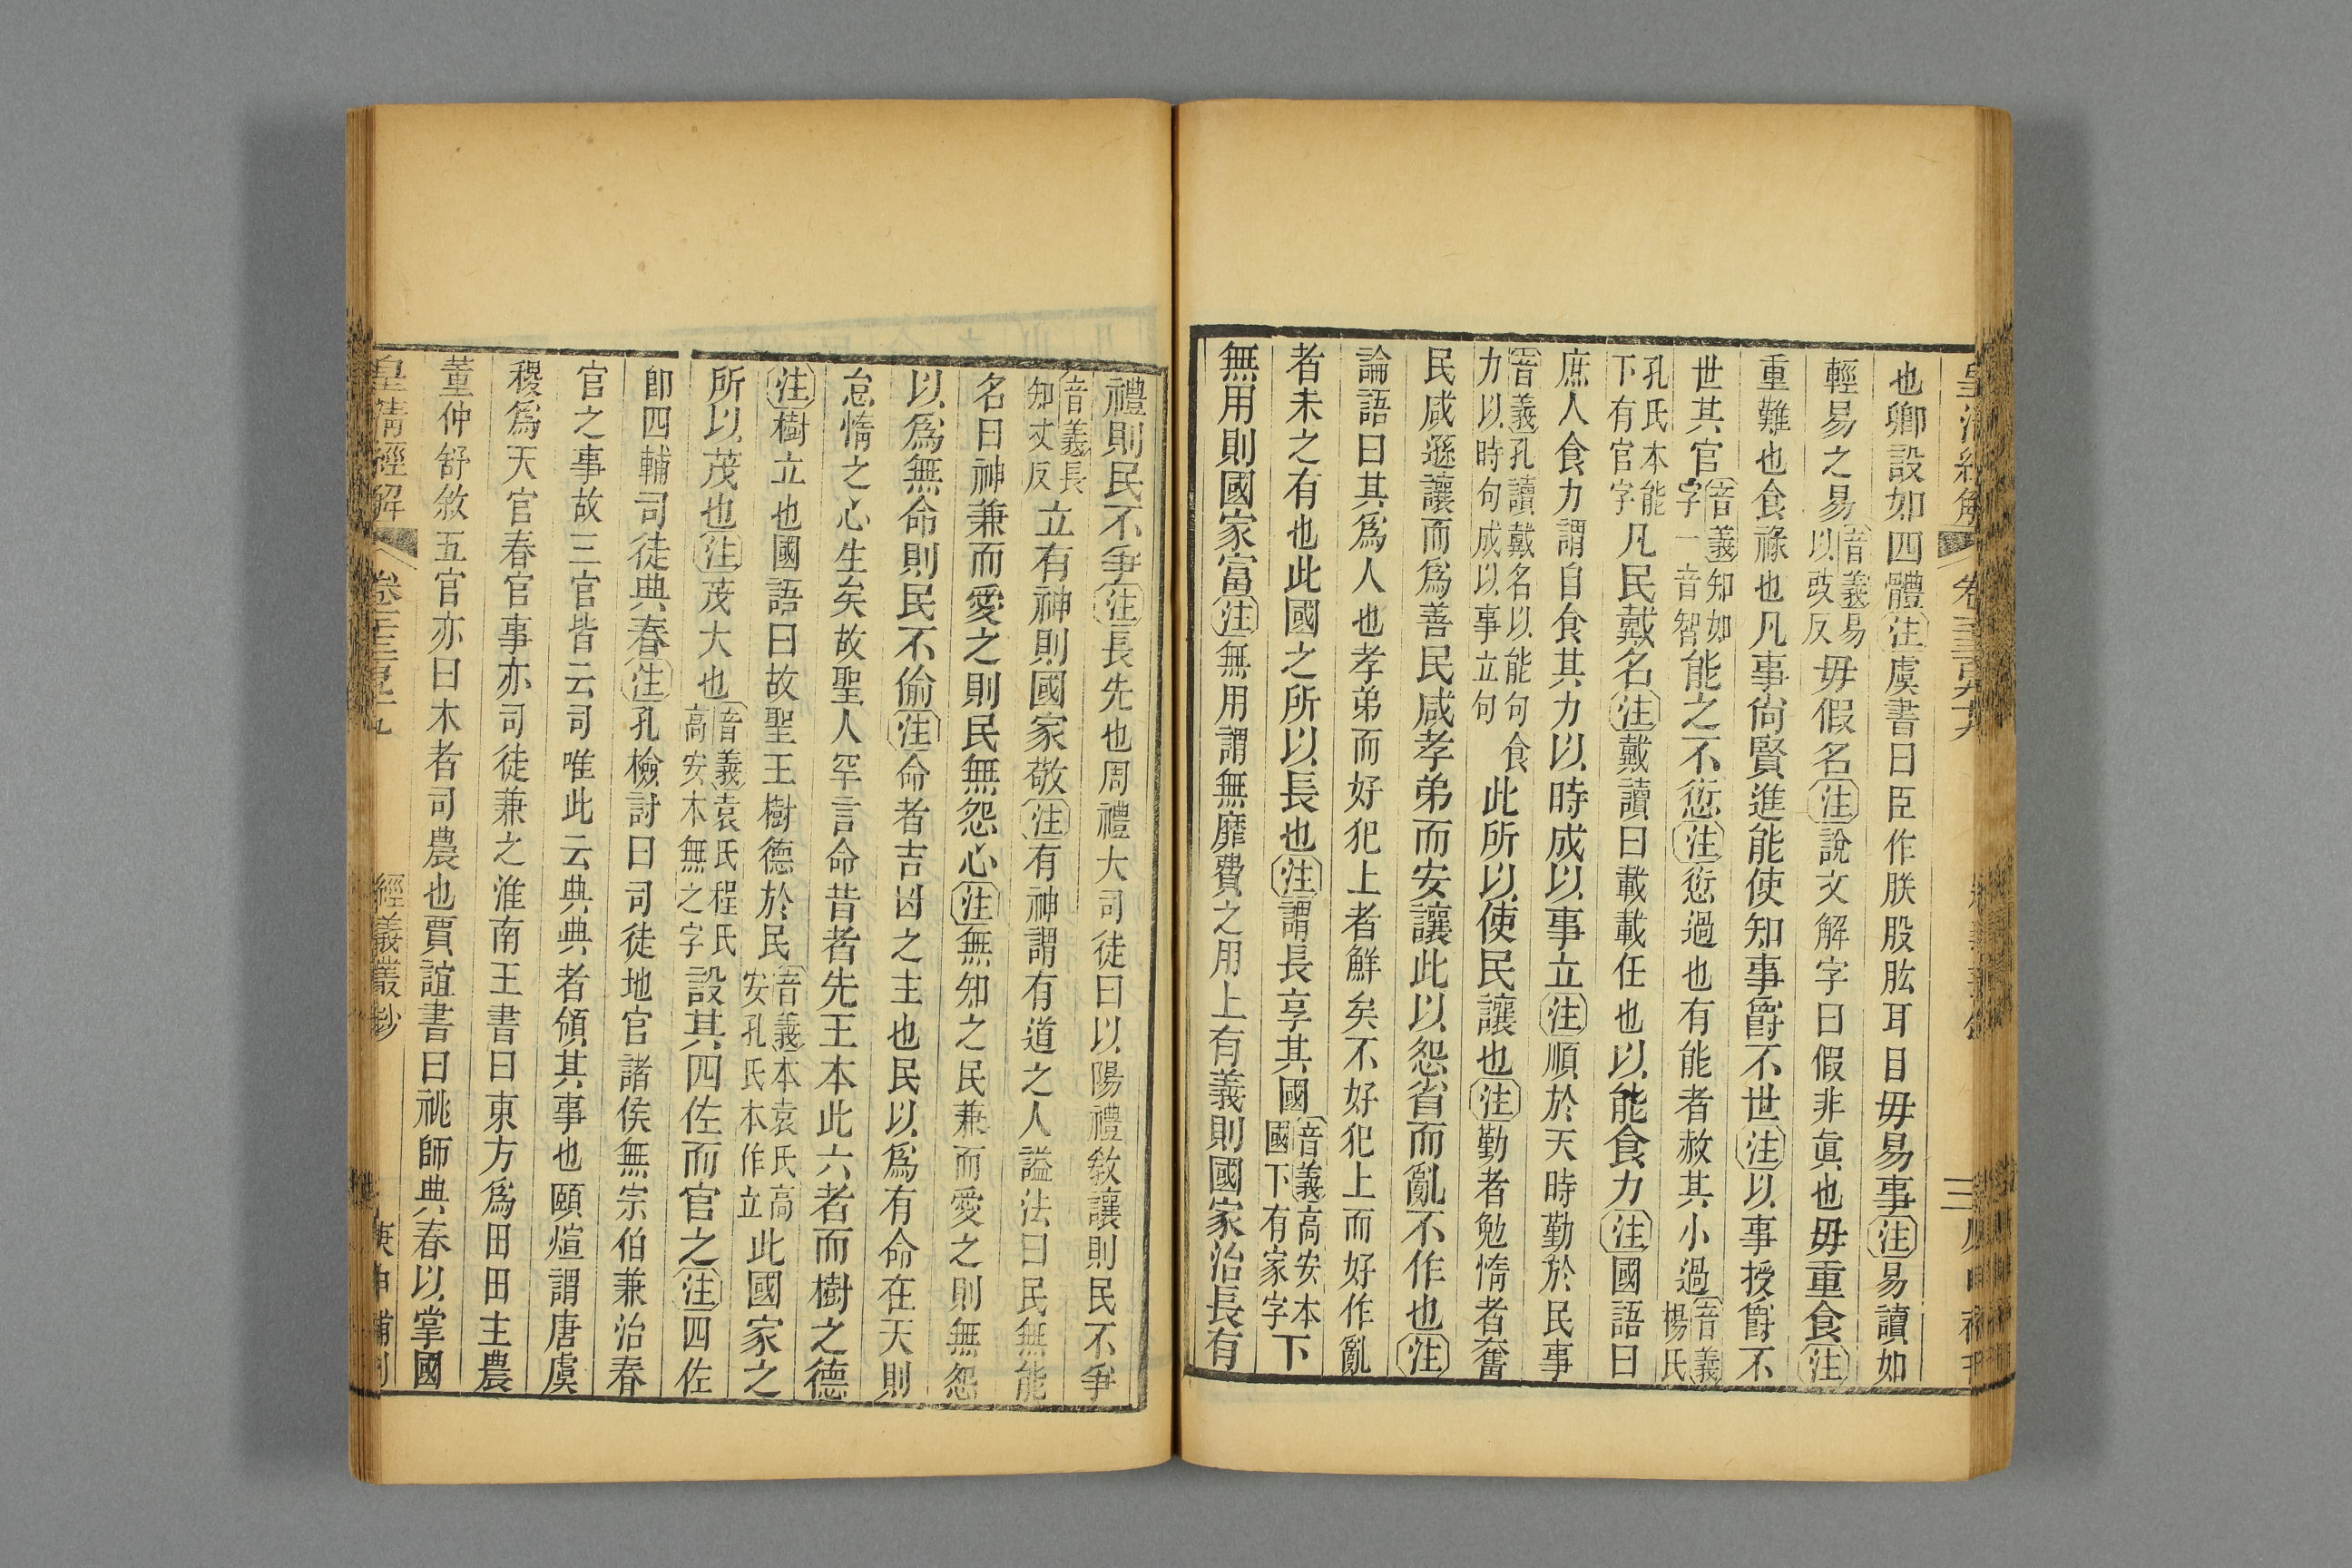 也卿設如四體注虞書曰臣作朕股肱耳目毋易事注易讀如
輕易之易音義易以豉反毋假名注說文解字曰假非眞也毋重食注
重難也食祿也凡事尙賢進能使知事爵不世注以事授爵不
世其官音義知如字一音智能之不愆注愆過也有能者赦其小過音義楊氏
孔氏本能下有官字凡民戴名注戴讀曰載載任也以能食力注國語曰
庶人食力謂自食其力以時成以事立注順於天時勤於民事
音義孔讀戴名以能句食力以時句成以事立句此所以使民讓也注勤者勉惰者奮
民咸遜讓而爲善民咸孝弟而安讓此以怨省而亂不作也注
論語曰其爲人也孝弟而好犯上者鮮矣不好犯上而好作亂
者未之有也此國之所以長也注謂長享其國音義高安本國下有家字下
無用則國家富注無用謂無靡費之用上有義則國家治長有
禮則民不爭注長先也周禮大司徒曰以陽禮敎讓則民不爭
音義長知丈反立有神則國家敬注有神謂有道之人謚法曰民無能
名曰神兼而愛之則民無怨心注無知之民兼而愛之則無怨
以爲無命則民不偷注命者吉凶之主也民以爲有命在天則
怠惰之心生矣故聖人罕言命昔者先王本此六者而樹之德
注樹立也國語曰故聖王樹德於民音義本袁氏高安孔氏本作立此國家之
所以茂也注茂大也音義袁氏程氏高安本無之字設其四佐而官之注四佐
卽四輔司徒典春注孔檢討曰司徒地官諸侯無宗伯兼治春
官之事故三官皆云司唯此云典典者領其事也頤煊謂唐虞
稷爲天官春官事亦司徒兼之淮南王書曰東方爲田田主農
董仲舒敘五官亦曰木者司農也賈誼書曰祧師典春以掌國
皇清經解
經義叢鈔
庚申補刊